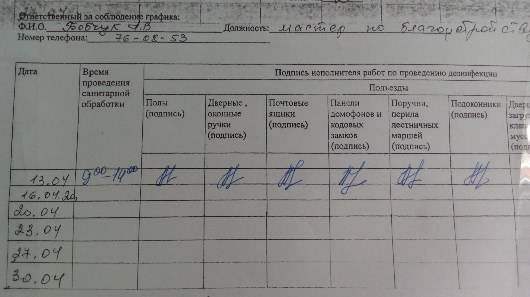 Ответственный за соблюдение графика:
Ф.И.О. Бобчук А.В Должность: мастер по благоустройству
Номер телефона: 76-08-53
Дата
Время проведения санитарной обработки
Подпись исполнителя работ по проведению дезинфекции
Подъезды
Полы (подпись)
Дверные, оконные ручки (подпись)
Почтовые ящики (подпись)
Панели домофонов и кодовых замков (подпись)
Поручни, перила лестничных маршей (подпись)
Подоконники (подпись)
13.04 9⁰⁰-14⁰⁰
16.04.20
20.04
23.04
27.04
30.04